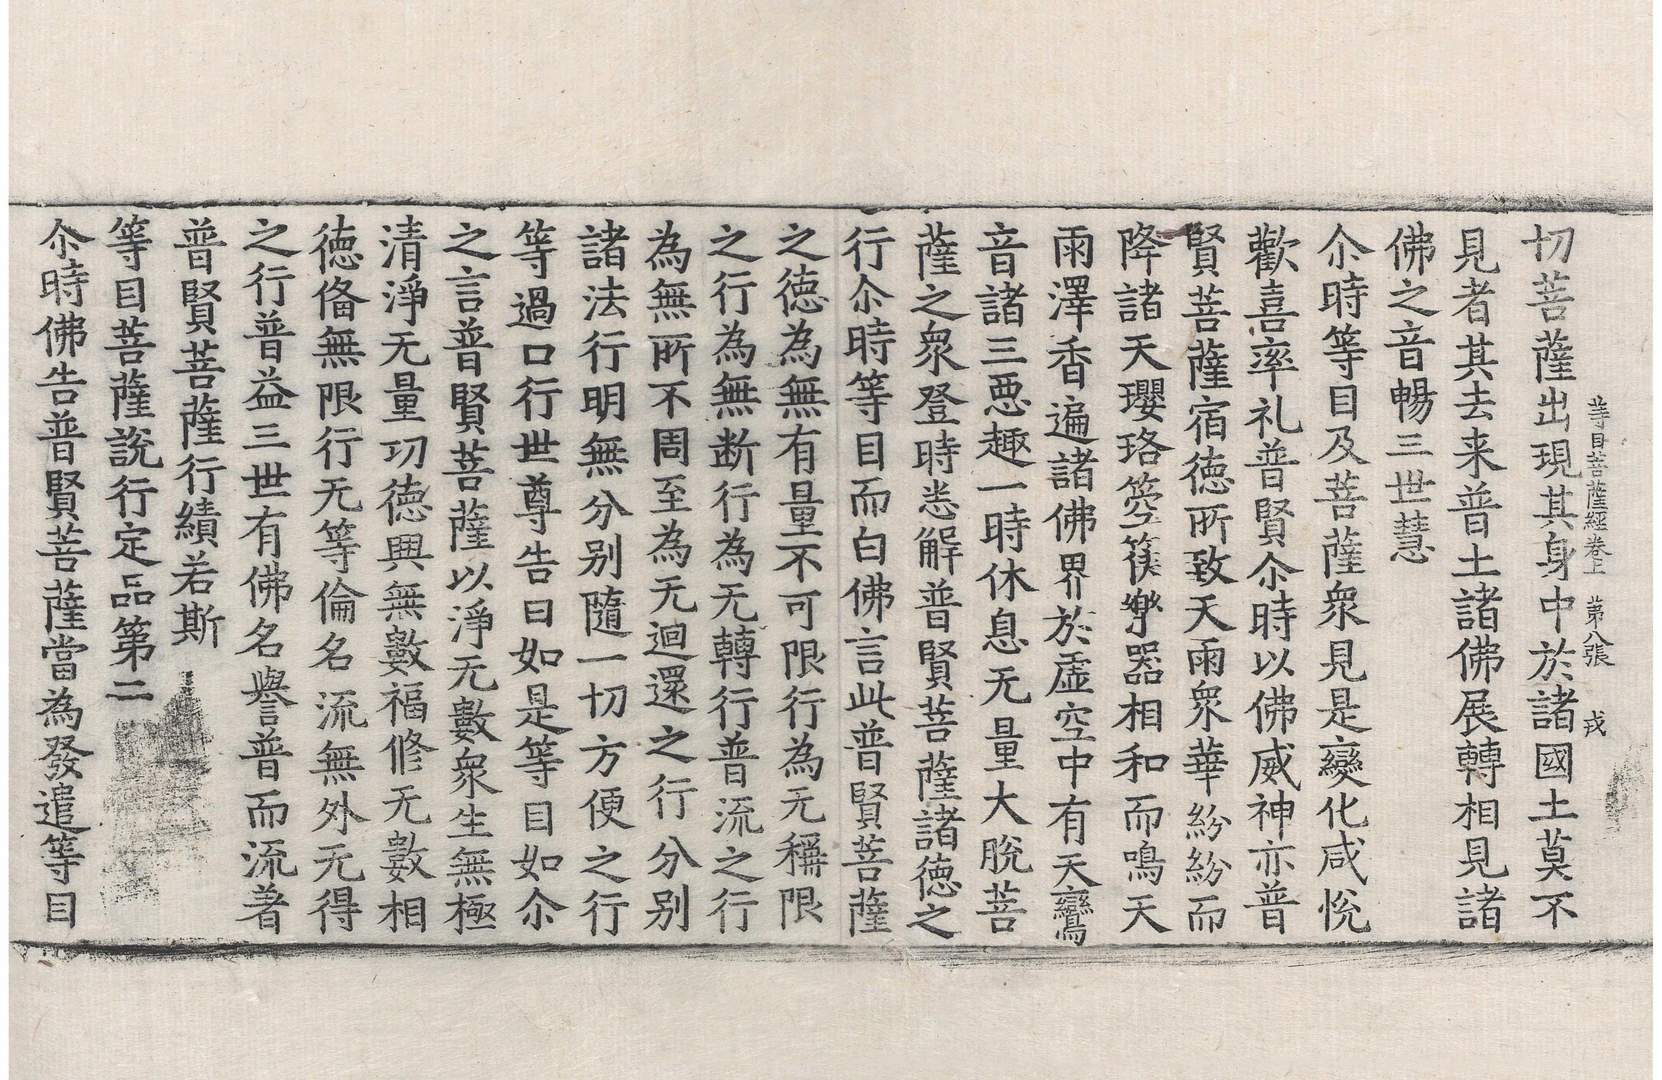 等目菩薩經卷上 第八張 戎
切菩薩出現其身中於諸國土莫不
見者其去来普土諸佛展轉相見諸
佛之音暢三世慧
尒時等目及菩薩衆見是變化咸悅
歡喜率礼普賢尒時以佛威神亦普
賢菩薩宿徳所致天雨衆華紛紛而
降諸天瓔珞箜篌樂器相和而鳴天
雨澤香遍諸佛界於虛空中有天鸞
音諸三惡趣一時休息无量大脫菩
薩之衆登時悉解普賢菩薩諸徳之
行尒時等目而白佛言此普賢菩薩
之徳為無有量不可限行為无稱限
之行為無断行為无轉行普流之行
為無所不周至為无迴還之行分别
諸法行明無分别隨一切方便之行
等過口行世尊告曰如是等目如尒
之言普賢菩薩以淨无數衆生無極
清淨无量功徳興無數福修无數相
徳俻無限行无等倫名流無外无得
之行普益三世有佛名譽普而流著
普賢菩薩行績若斯
等目菩薩說行定品第二
尒時佛告普賢菩薩當為發遣等目